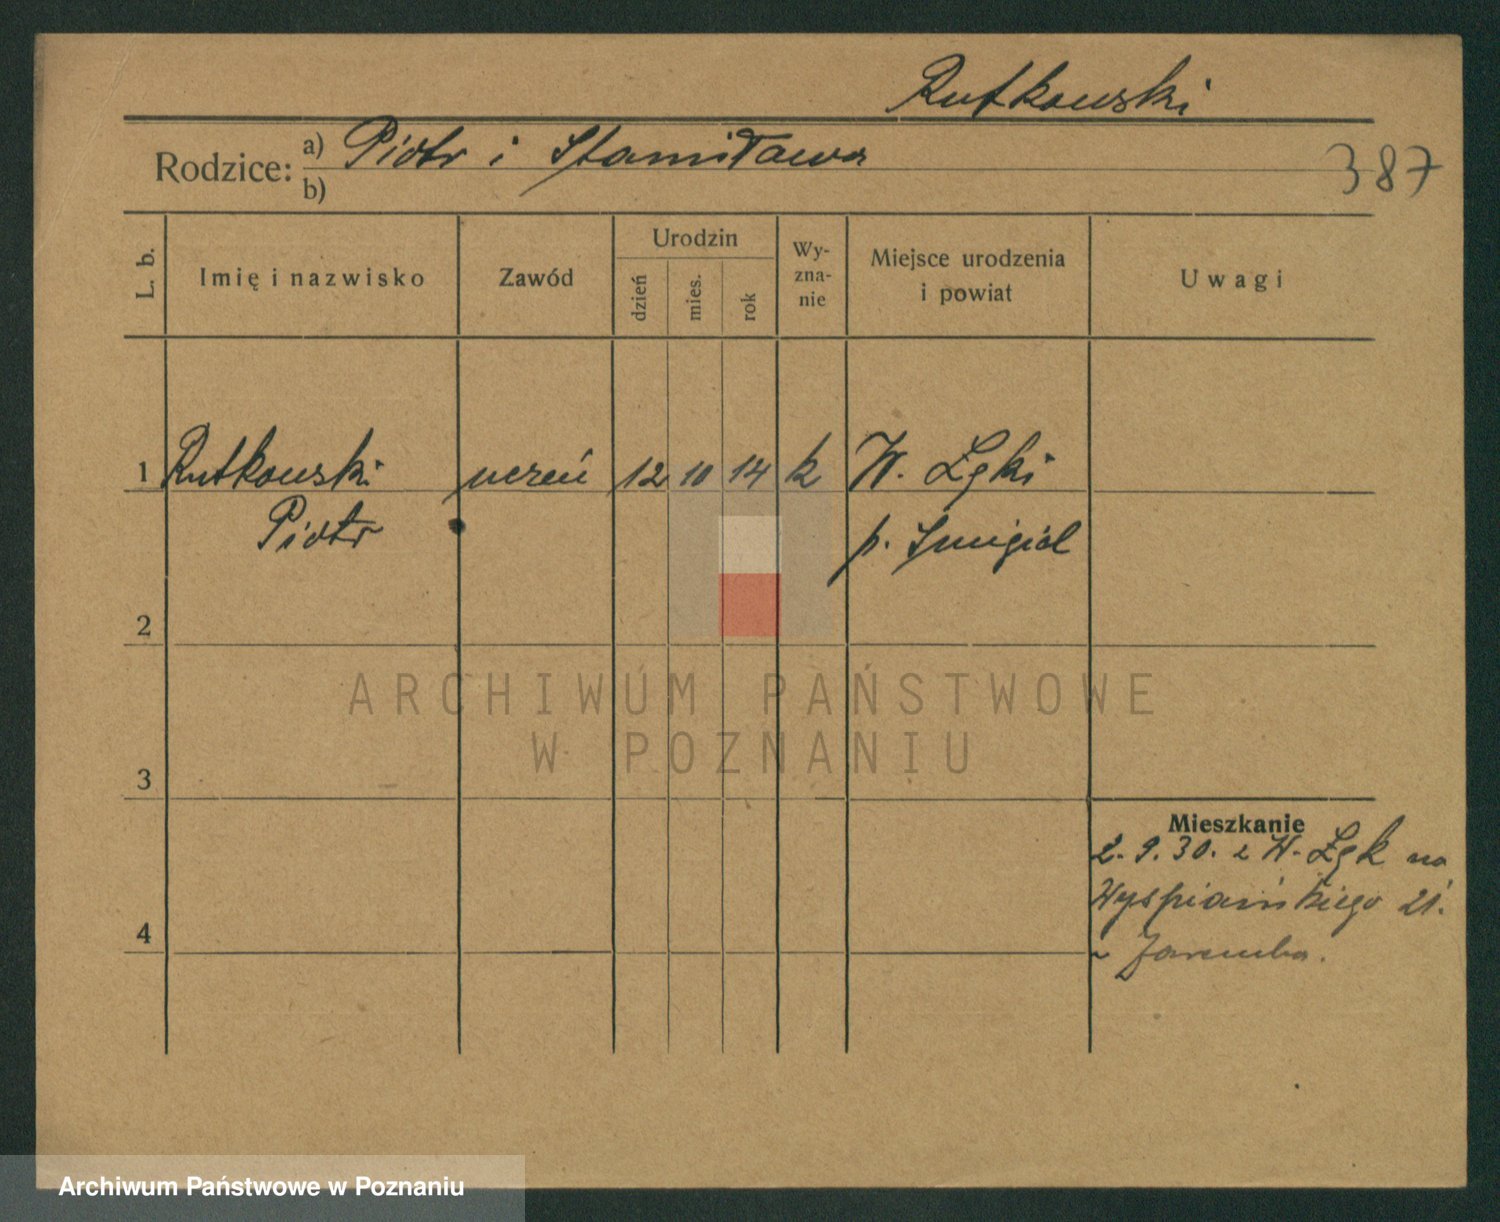 Rutkowski
Rodzice: a) Piotr i Stanisława
b)
387
L. b.
Imię i nazwisko
Zawód
Urodzin
dzień
mies.
rok
Wy-
zna-
nie
Miejsce urodzenia
i powiat
Uwagi
1 Rutkowski uczeń 12 10 14 k W. Łęki
Piotr p. Śmigiel
2
3
4
ARCHIWUM PAŃSTWOWE
W POZNANIU
Mieszkanie
2. 9. 30. z W. Łęk na
Wyspiańskiego 21.
Zaremba.
Archiwum Państwowe w Poznaniu